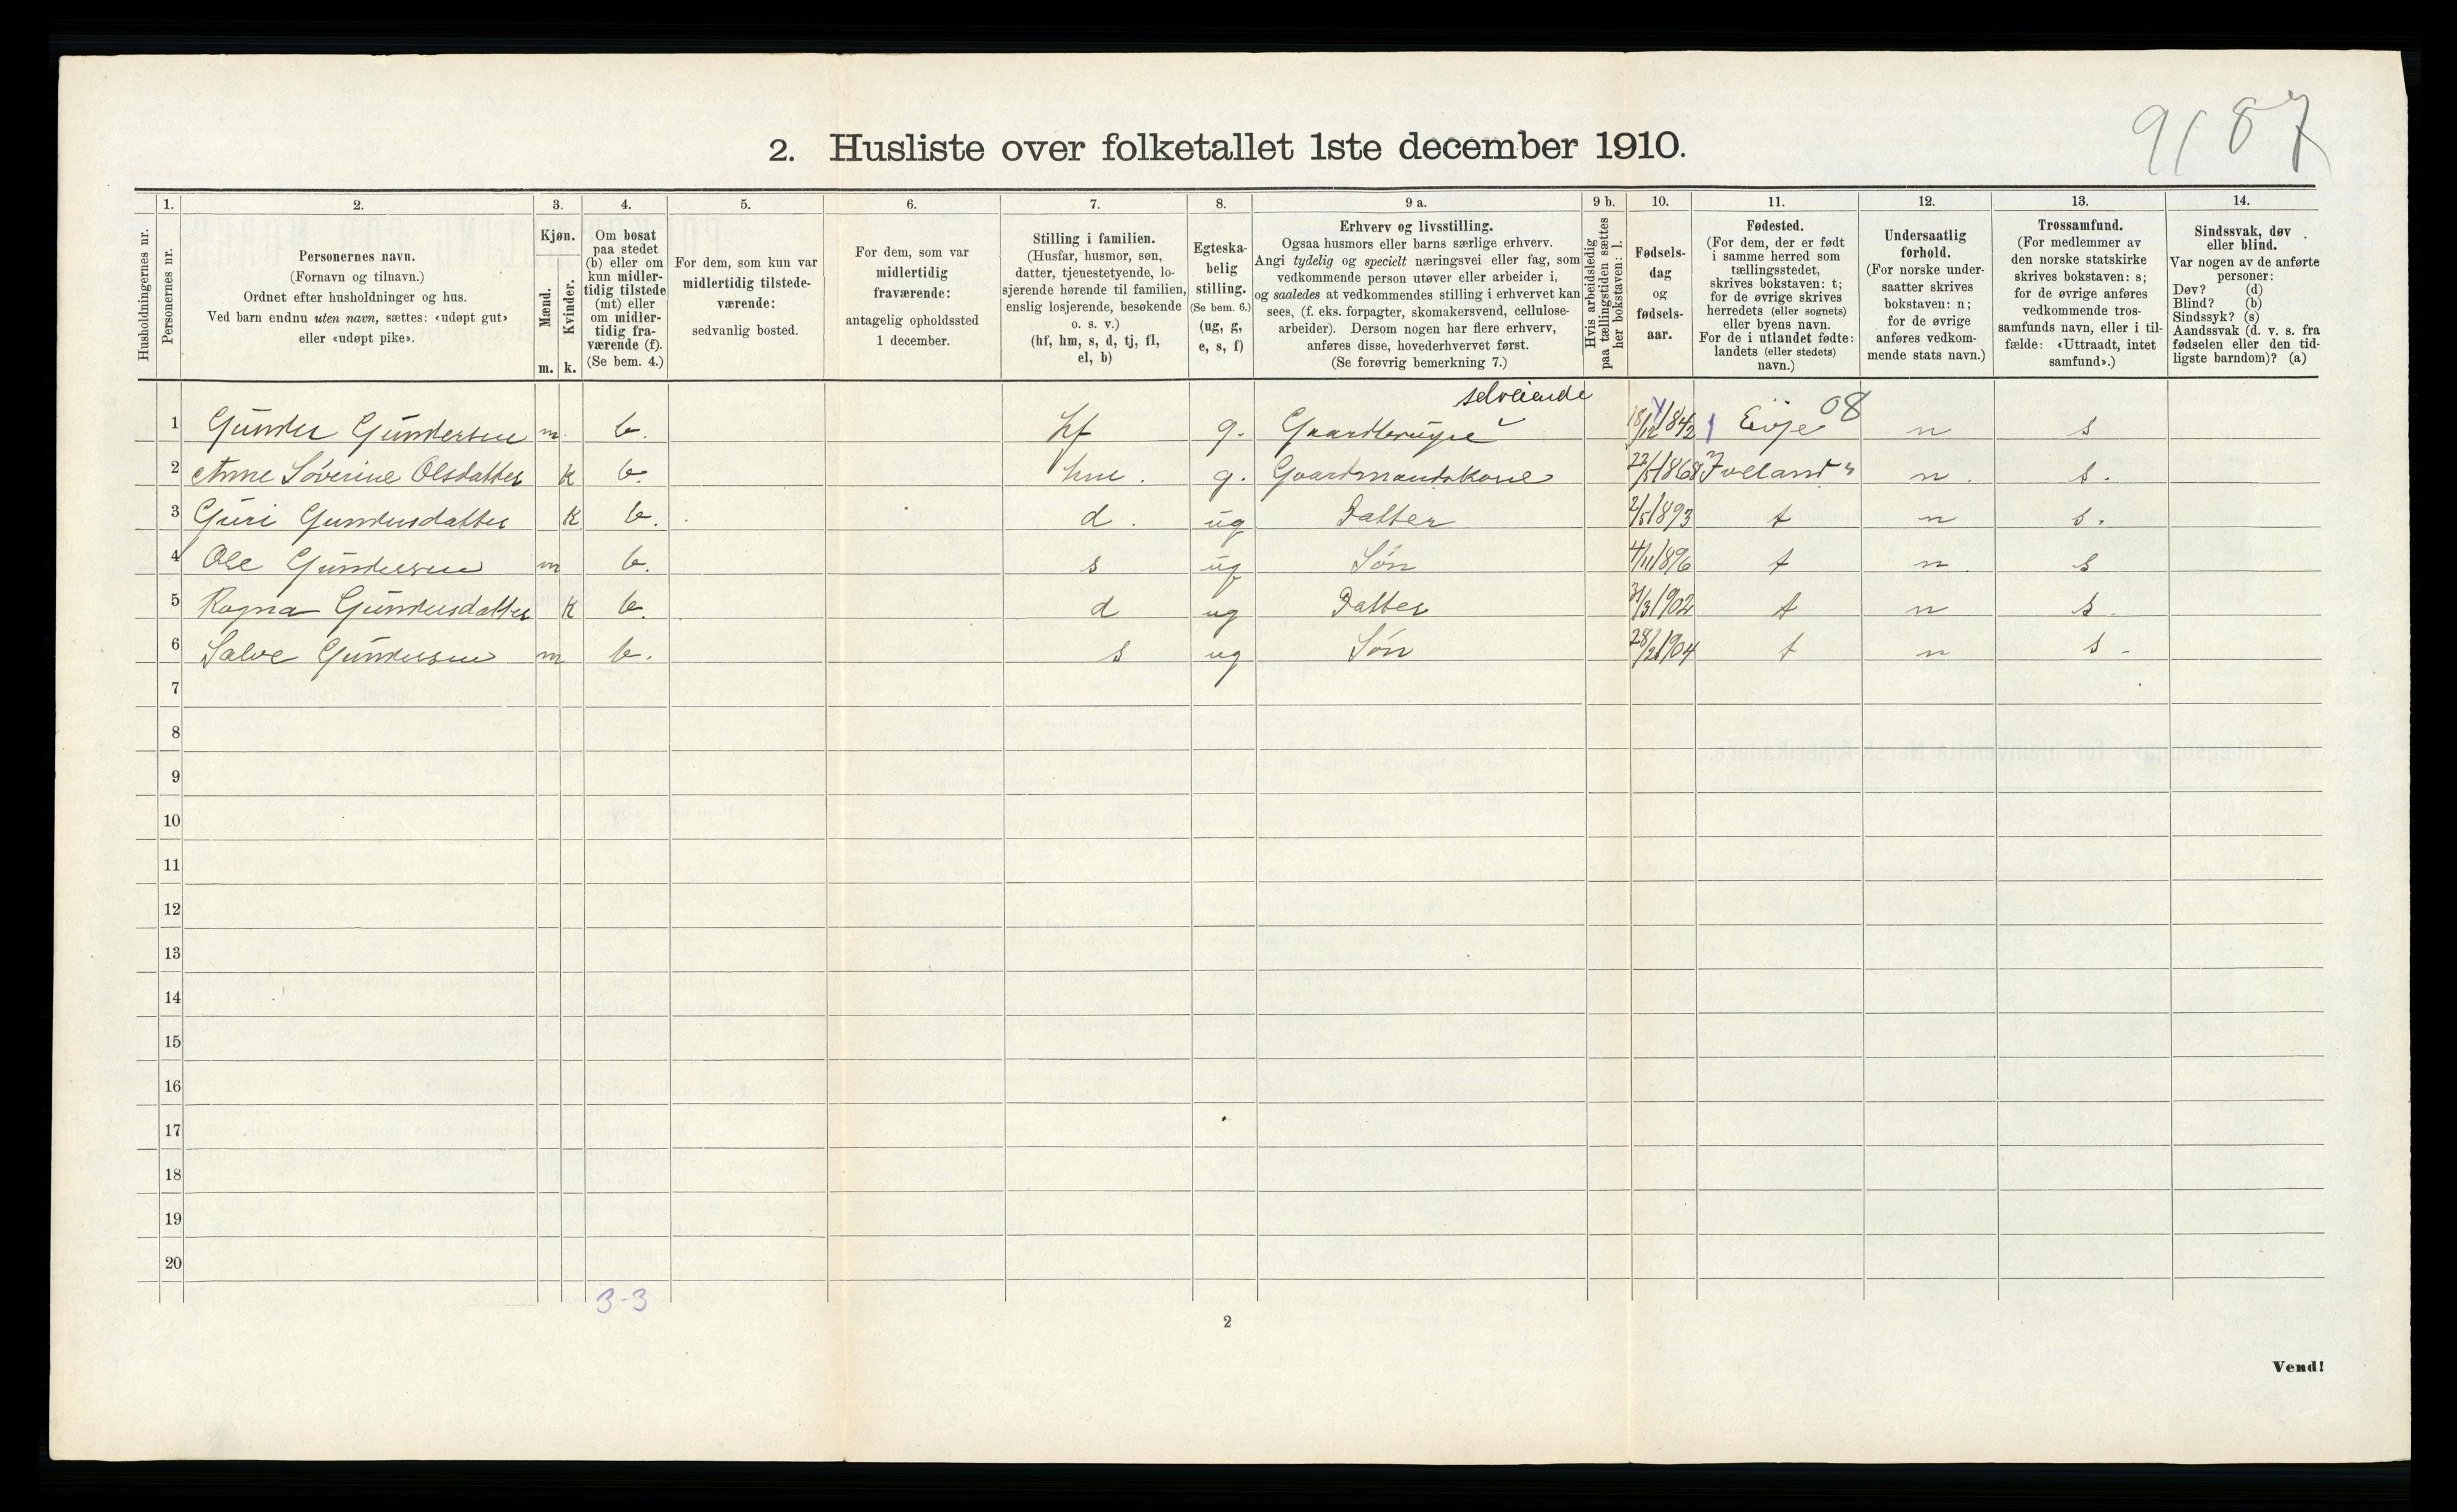 9/87
2. Husliste over folketallet 1ste december 1910.
Husholdningernes nr.
1.
Personernes nr.
2.
Personernes navn.
(Fornavn og tilnavn.)
Ordnet efter husholdninger og hus.
Ved barn endnu uten navn, sættes: «udøpt gut»
eller «udøpt pike».
3.
Kjøn.
Mænd.
Kvinder.
m. k.
4.
Om bosat
paa stedet
(b) eller om
kun midler-
tidig tilstede
(mt) eller
om midler-
tidig fra-
værende (f).
(Se bem. 4.)
5.
For dem, som kun var
midlertidig tilstede-
værende:
sedvanlig bosted.
6.
For dem, som var
midlertidig
fraværende:
antagelig opholdssted
1 december.
7.
Stilling i familien.
(Husfar, husmor, søn,
datter, tjenestetyende, lo-
sjerende hørende til familien,
enslig losjerende, besøkende
o. s. v.)
(hf, hm, s, d, tj, fl,
el, b)
8.
Egteska-
belig
stilling.
(Se bem. 6.)
(ug, g,
e, s, f)
9 a.
Erhverv og livsstilling.
Ogsaa husmors eller barns særlige erhverv.
Angi tydelig og specielt næringsvei eller fag, som
vedkommende person utøver eller arbeider i,
og saaledes at vedkommendes stilling i erhvervet kan
sees, (f. eks. forpagter, skomakersvend, cellulose-
arbeider). Dersom nogen har flere erhverv,
anføres disse, hovederhvervet først.
(Se forøvrig bemerkning 7.)
9 b.
Hvis arbeidsledig
paa tællingstiden sættes
her bokstaven: l.
10.
Fødsels-
dag
og
fødsels-
aar.
11.
Fødested.
(For dem, der er født
i samme herred som
tællingsstedet,
skrives bokstaven: t;
for de øvrige skrives
herredets (eller sognets)
eller byens navn.
For de i utlandet fødte:
landets (eller stedets)
navn.)
12.
Undersaatlig
forhold.
(For norske under-
saatter skrives
bokstaven: n;
for de øvrige
anføres vedkom-
mende stats navn.)
13.
Trossamfund.
(For medlemmer av
den norske statskirke
skrives bokstaven: s;
for de øvrige anføres
vedkommende tros-
samfunds navn, eller i til-
fælde: «Uttraadt, intet
samfund».)
14.
Sindssvak, døv
eller blind.
Var nogen av de anførte
personer:
Døv? (d)
Blind? (b)
Sindssyk? (s)
Aandssvak (d. v. s. fra
fødselen eller den tid-
ligste barndom)? (a)
selveiende
1 Gunder Gundersen m. b. hf g. Gaardbruger 18/12 1842 Evje 08 n s
2 Anne Söverine Olsdatter k b. hm. g. Gaardmandskone 22/5 1868 Iveland " n. s.
3 Guri Gundersdatter k b. d. ug Datter 2/5 1893 t n s.
4 Ole Gundersen m b. s ug Søn 4/11 1896 t n. s
5 Ragna Gundersdatter k b. d ug Datter 31/3 1902 t n s.
6 Salve Gundersen m b. s ug Søn 28/2 1904 t n s -
7
8
9
10
11
12
13
14
15
16
17
18
19
20
3-3
2
Vend!